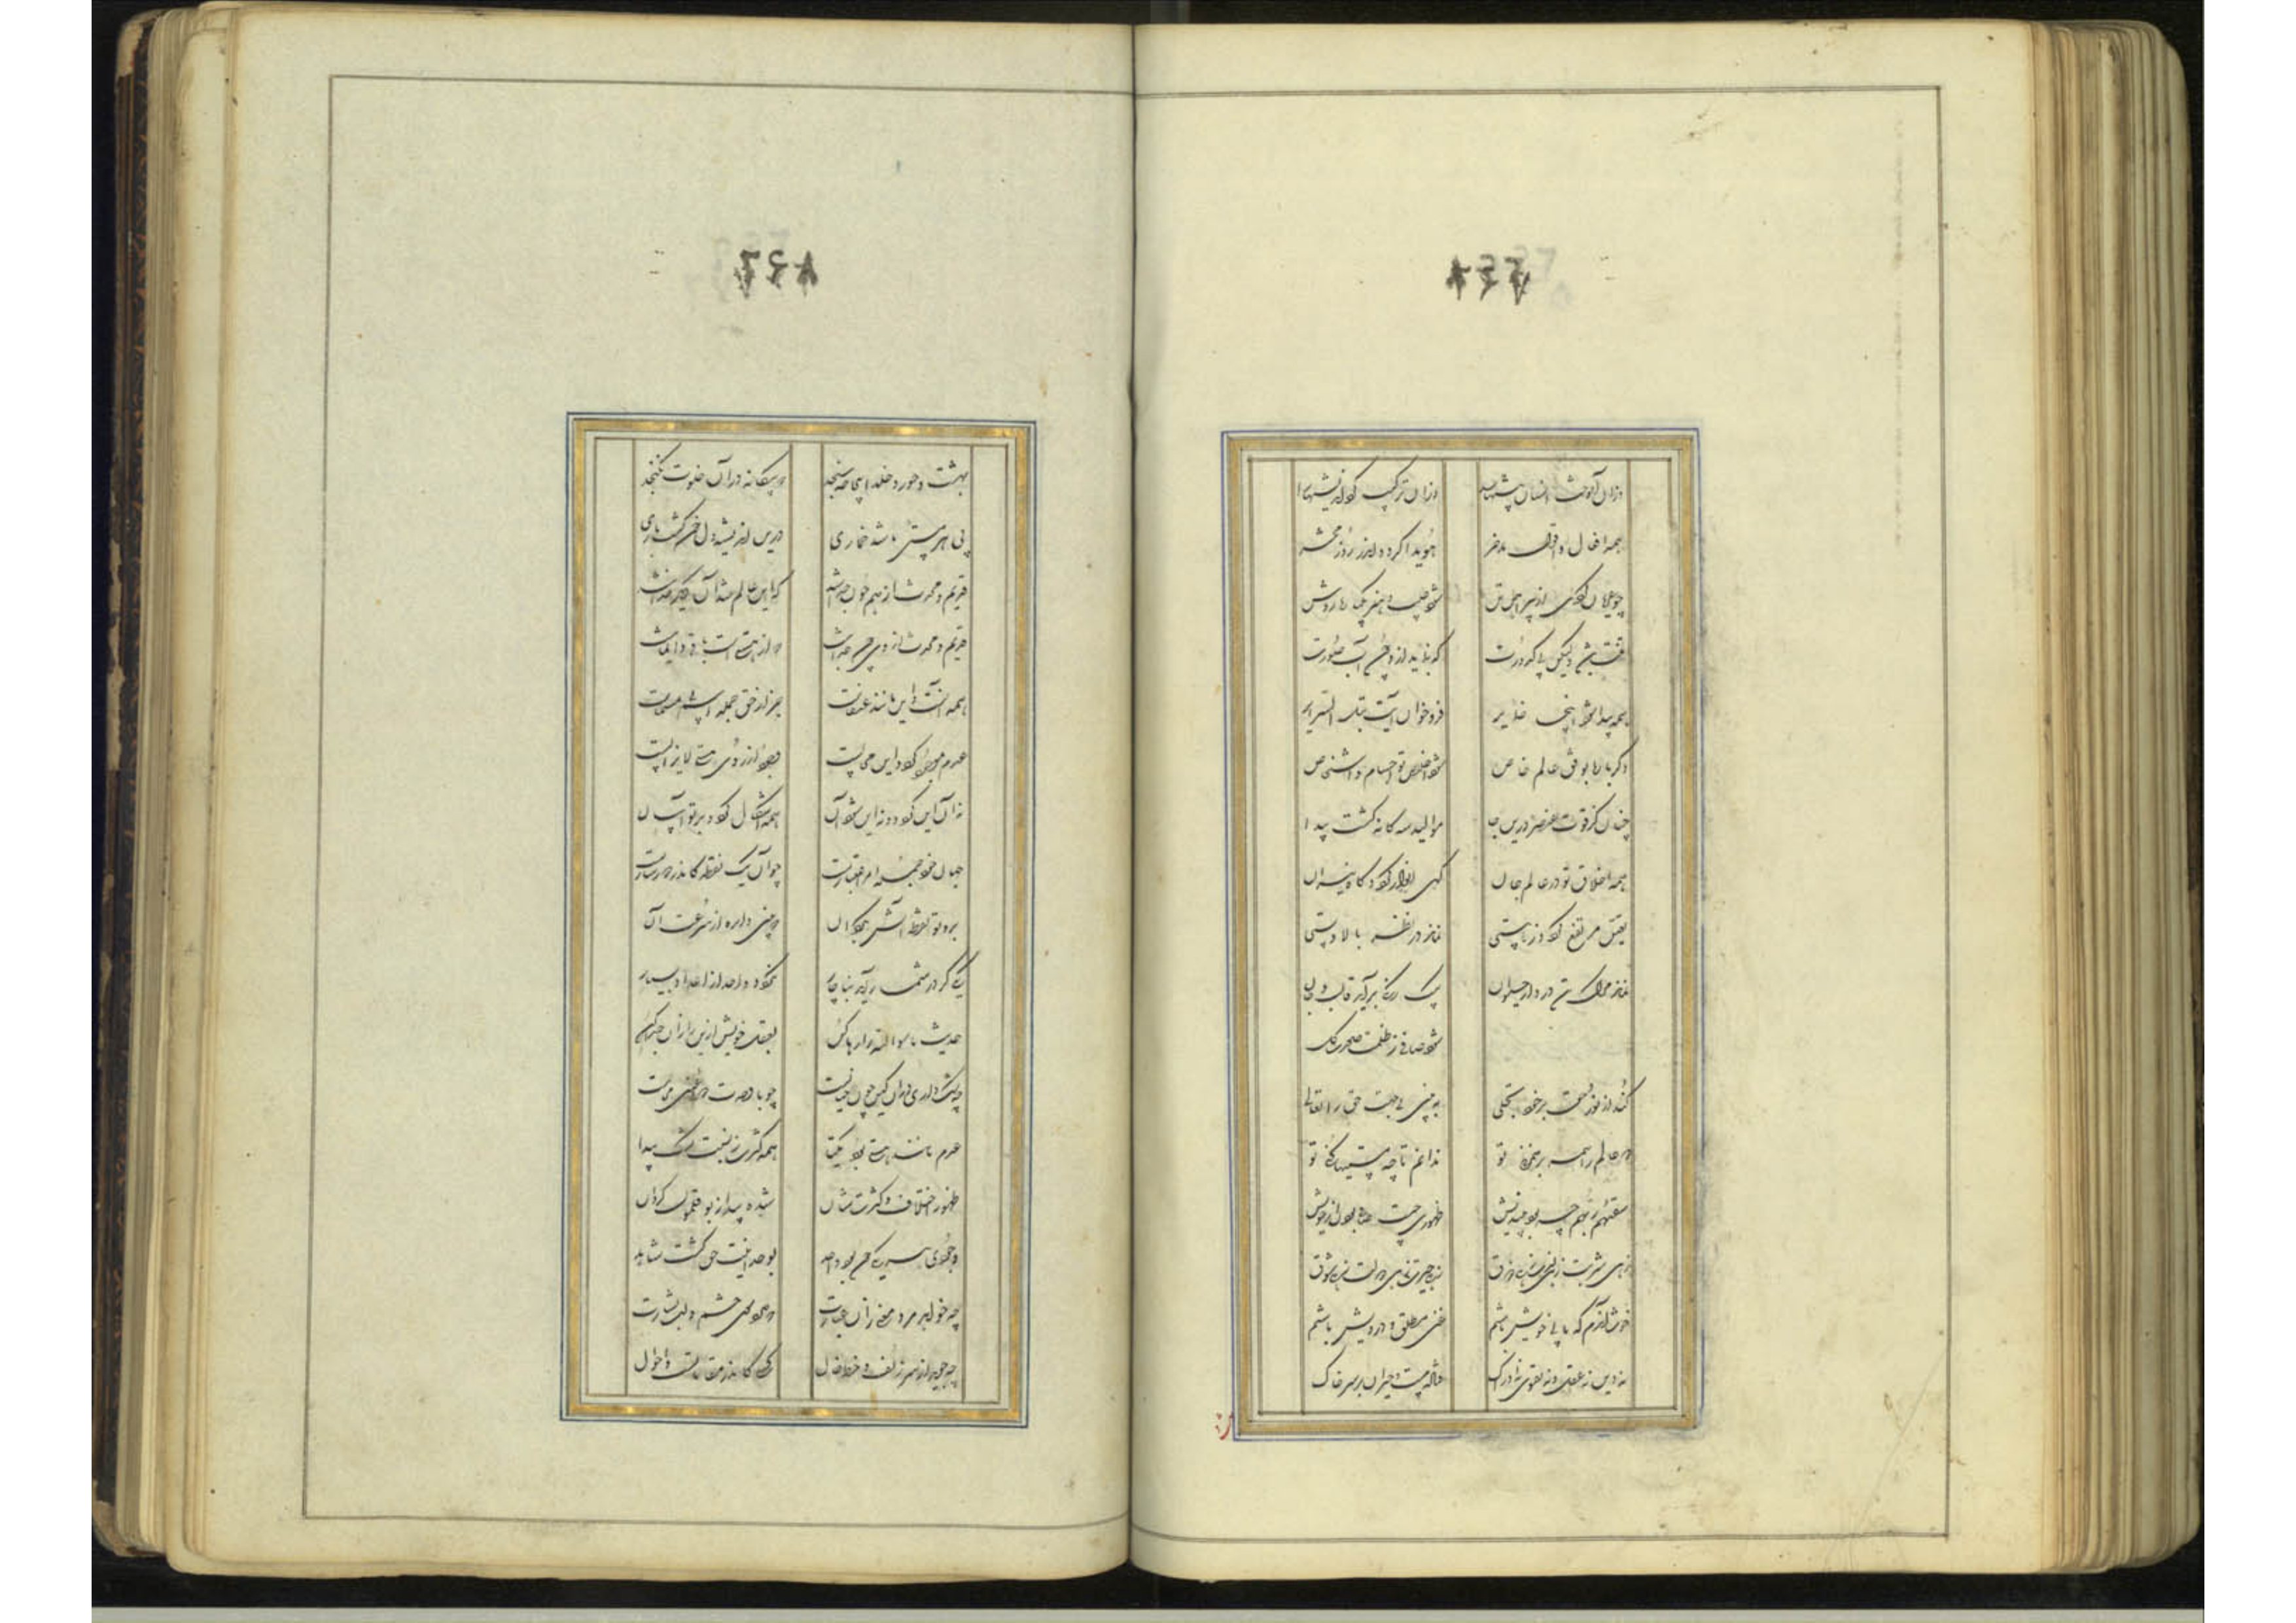 وزان آموخت انسان پیشها را وزان ترکیب کرد اندیشها را
همه افعال و اقوال مدخر هویدا گردد اندر روز محشر
چو عریان گردی از پیراهن تن شود عیب و هنر یکباره روشن
تنت باشد ولیکن بی کدورت که بنماید ازو چون آب صورت
همه پیدا شود آنجا ضمایر فرو خوان آیت تبلی السرایر
دگر باره بوفق عالم خاص شود اخلاق تو اجسام و اشخاص
چنان کز قوت عنصر درین جا موالید سه گانه گشت پیدا
همه اخلاق تو در عالم جان گهی انوار گردد گاه نیران
تعین مرتفع گردد ز هستی نماند در نظر بالا و پستی
نماند مرگ تن در دار حیوان بیک رنگی برآید قالب و جان
شود صافی ز ظلمت صورت گل
کند از نور حق بر خود تجلی به بینی بی جهت حق را تعالی
دو عالم را همه بر هم زنی تو ندانم تا چه مستیها کنی تو
سقیهم ربهم چبود بیندیش طهوری چیست صافی بودن از خویش
زهی شربت زهی لذت زهی ذوق زهی حیرت زهی دولت زهی شوق
خوشا آندم که ما بی خویش باشیم غنی مطلق و درویش باشیم
نه دین نه عقل و نه تقوی نه ادراک فتاده مست و حیران بر سر خاک
بهشت و حور و خلد اینجا چه سنجد که بیگانه در آن خلوت نگنجد
پی هر مستی باشد خماری درین اندیشه دل خون گشت باری
قدیم و محدث از هم چون جدا شد که این عالم شد آن دیگر خدا شد
قدیم و محدث از وی چون جدا نیست که از هستی است باقی دایما نیست
همه آنست و این مانند عنقاست جز از حق جمله اسم بی مسماست
عدم موجود گردد این محالست وجود از روی هستی لایزالست
نه آن این گردد و نه این شود آن همه اشکال گردد بر تو آسان
جهان خود جمله امر اعتباریست چو آن یک نقطه کاندر دور ساریست
برو تو نقطه آتش بگردان که بینی دایره از سرعت آن
یکی گر در شمار آید بناچار نگردد واحد از اعداد بسیار
حدیث ماسوا الله را رها کن بعقل خویش این را زان جدا کن
چه شک داری در آن کین چون خیالست چو با وحدت دوئی عین محالست
عدم مانند هستی بود یکتا همه کثرت ز نسبت گشت پیدا
ظهور اختلاف و کثرت شان شده پیدا ز بوقلمون امکان
وجود هر یکی چون بود واحد بوحدانیت حق گشت شاهد
چه خواهد مرد معنی زان عبارت که دارد سوی چشم و لب اشارت
چه جوید از سر زلف و خط و خال کسی کاندر مقاماتست و احوال